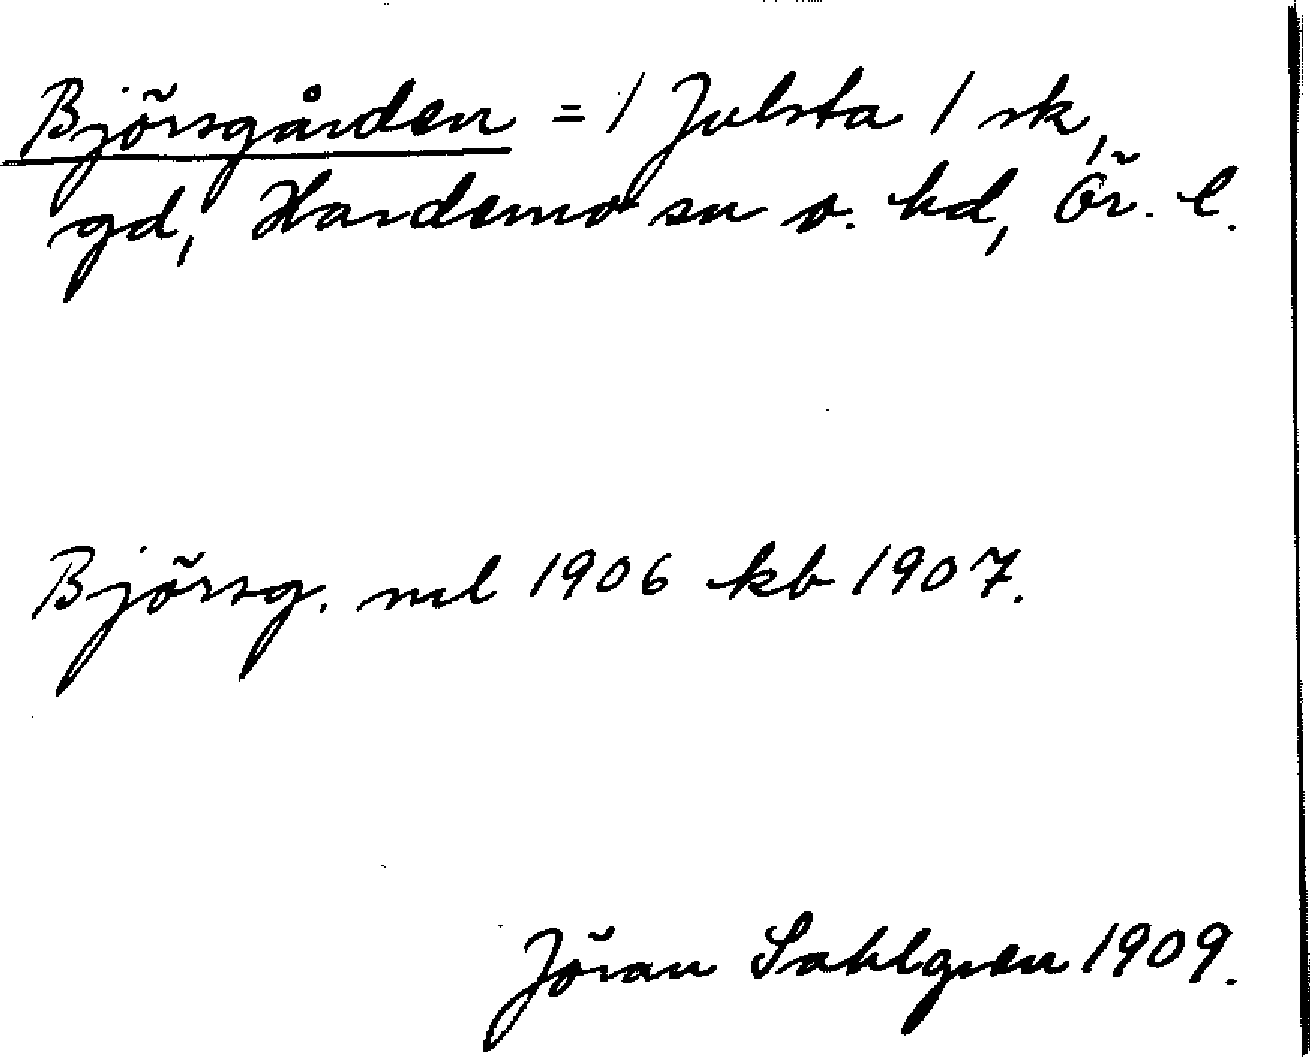 Björsgården = 1 Julsta 1 sk,
gd, Hardemo sn o. hd, Ör. l.
Björsg. ml 1906 kb 1907.
Jöran Sahlgren 1909.